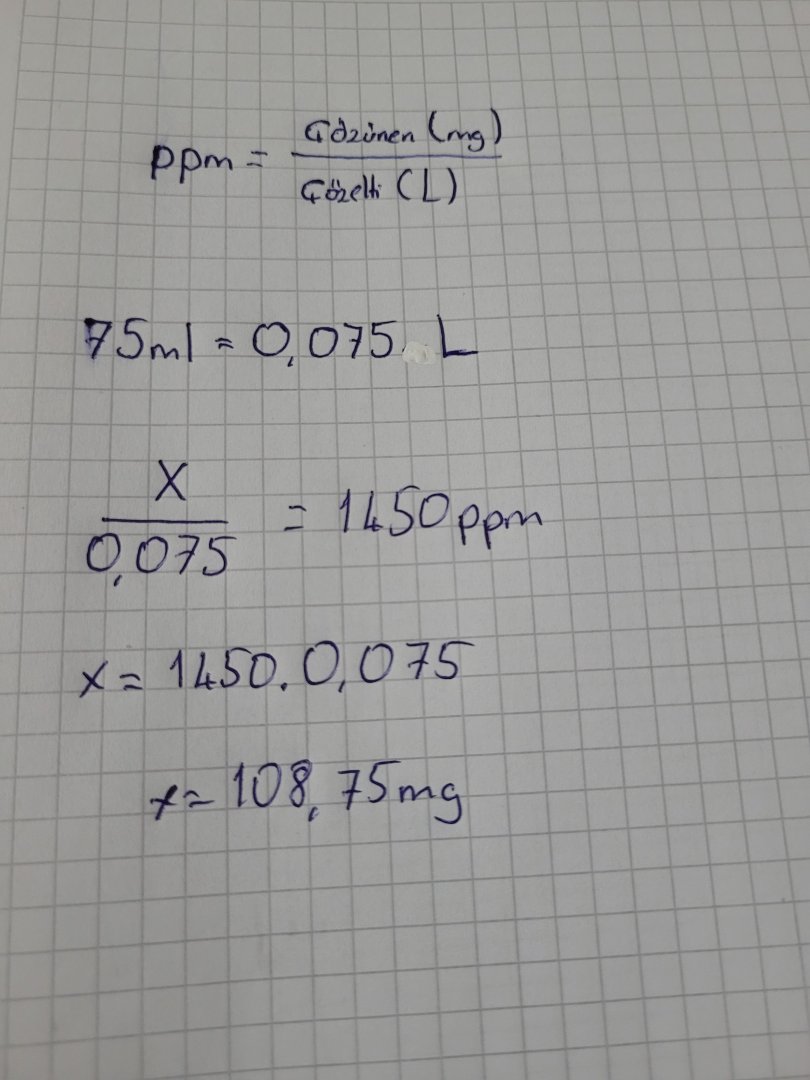 ppm = Çözünen (mg) / Çözelti (L)
75ml = 0,075 L
X / 0,075 = 1450 ppm
x = 1450 . 0,075
x = 108,75 mg